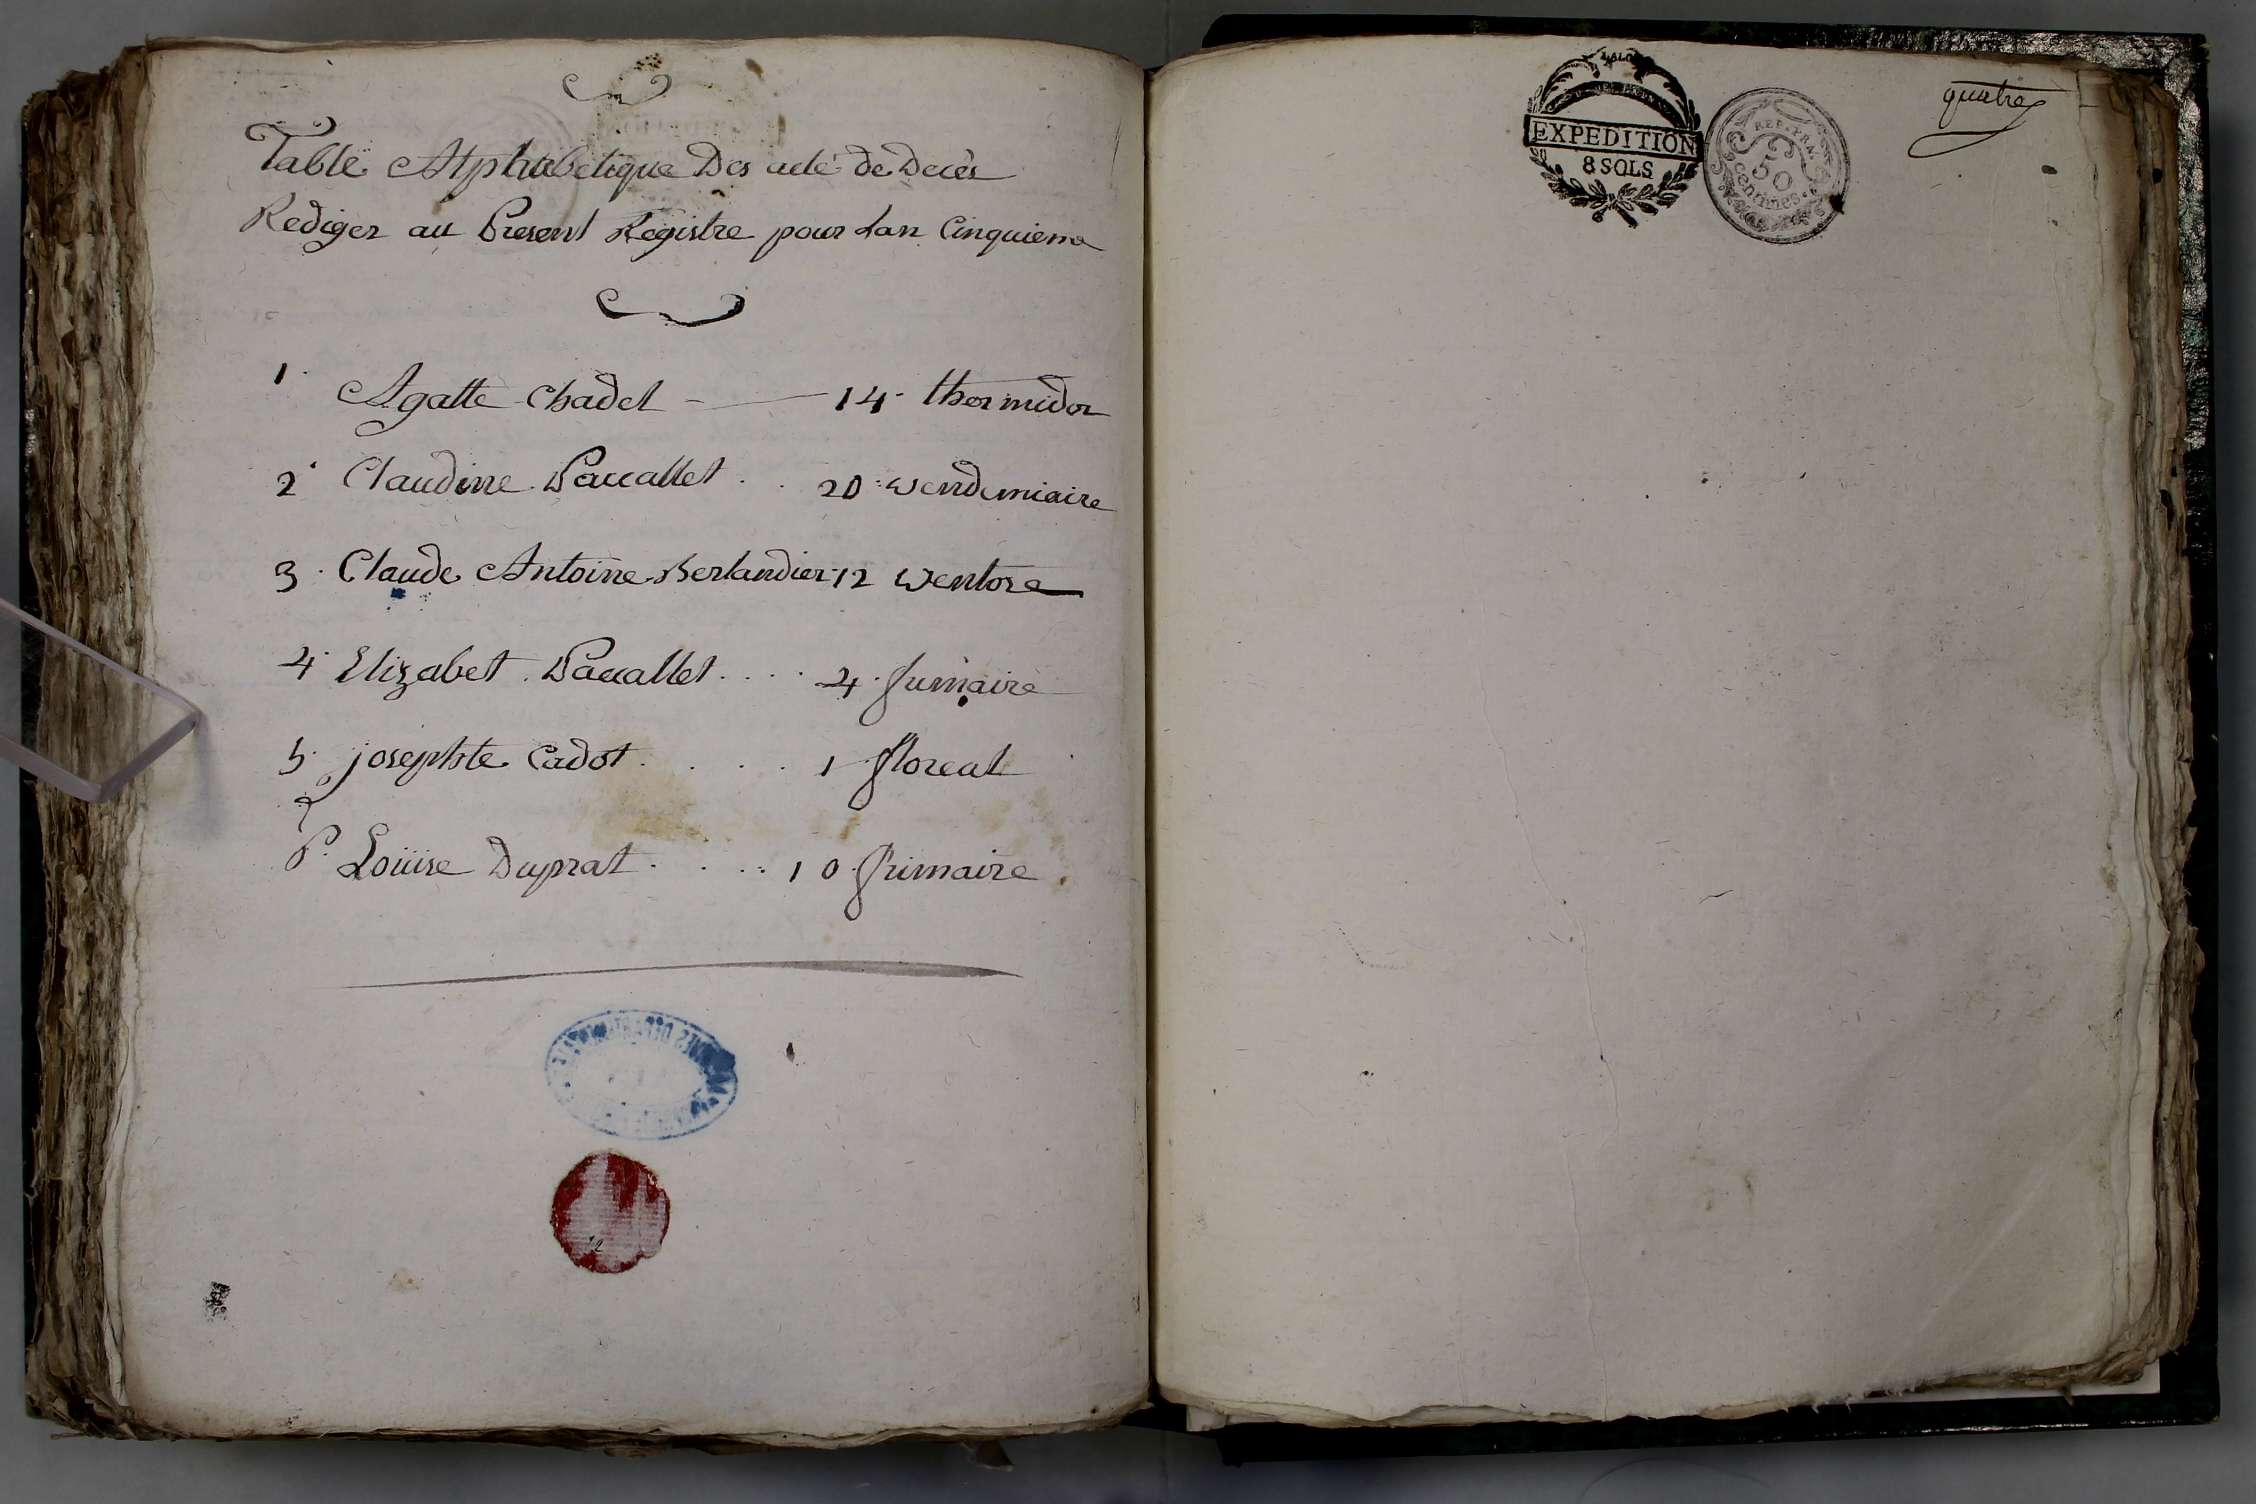 Table Alphabetique Des acte de Decès
Rediger au Present Registre pour Lan Cinquieme
1. Agatte Chadet 14. thermidor
2. Claudine Paccallet . . 20 wendemiaire
3. Claude Antoine Berlandier 12 wentore
4. Elizabet Paccallet . . . . 4. frimaire
5. josephte Cadot . . . . 1 floreal
6. Louise Duprat . . . . 10 frimaire
12
EXPEDITION
8 SOLS
REP. FRA.
50
centimes
quatre